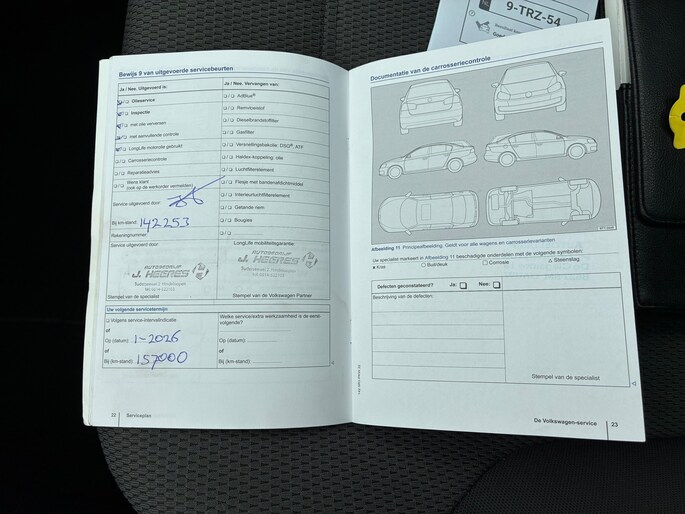 9-TRZ-54
Bewijs 9 van uitgevoerde servicebeurten
Ja / Nee. Uitgevoerd is:
Olieservice
Inspectie
met olie verversen
met aanvullende controle
LongLife motorolie gebruikt
Carrosseriecontrole
Reparatieadvies
Wens klant
(ook op de werkorder vermelden)
Service uitgevoerd door:
Bij km-stand: 142253
Rekeningnummer:
Service uitgevoerd door:
AUTOBEDRIJF
J. HEGRES
Stempel van de specialist
Ja / Nee. Vervangen van:
AdBlue®
Remvloeistof
Dieselbrandstoffilter
Gasfilter
Versnellingsbakolie: DSG®, ATF
Haldex-koppeling: olie
Luchtfilterelement
Flesje met bandenafdichtmiddel
Interieurluchtfilterelement
Getande riem
Bougies
LongLife mobiliteitsgarantie:
AUTOBEDRIJF
J. HEGRES
Stempel van de Volkswagen Partner
Uw volgende servicetermijn:
Volgens service-intervalindicatie
of
Op (datum): 1-2026
of
Bij (km-stand): 157000
Welke service/extra werkzaamheid is de eerst-
volgende?
Op (datum):
of
Bij (km-stand):
22 Serviceplan
Documentatie van de carrosseriecontrole
Afbeelding 11 Principeafbeelding. Geldt voor alle wagens en carrosserievarianten
Uw specialist markeert in Afbeelding 11 beschadigde onderdelen met de volgende symbolen:
Kras Buil/deuk Corrosie Steenslag
Defecten geconstateerd? Ja: Nee:
Beschrijving van de defecten:
Stempel van de specialist
De Volkswagen-service 23